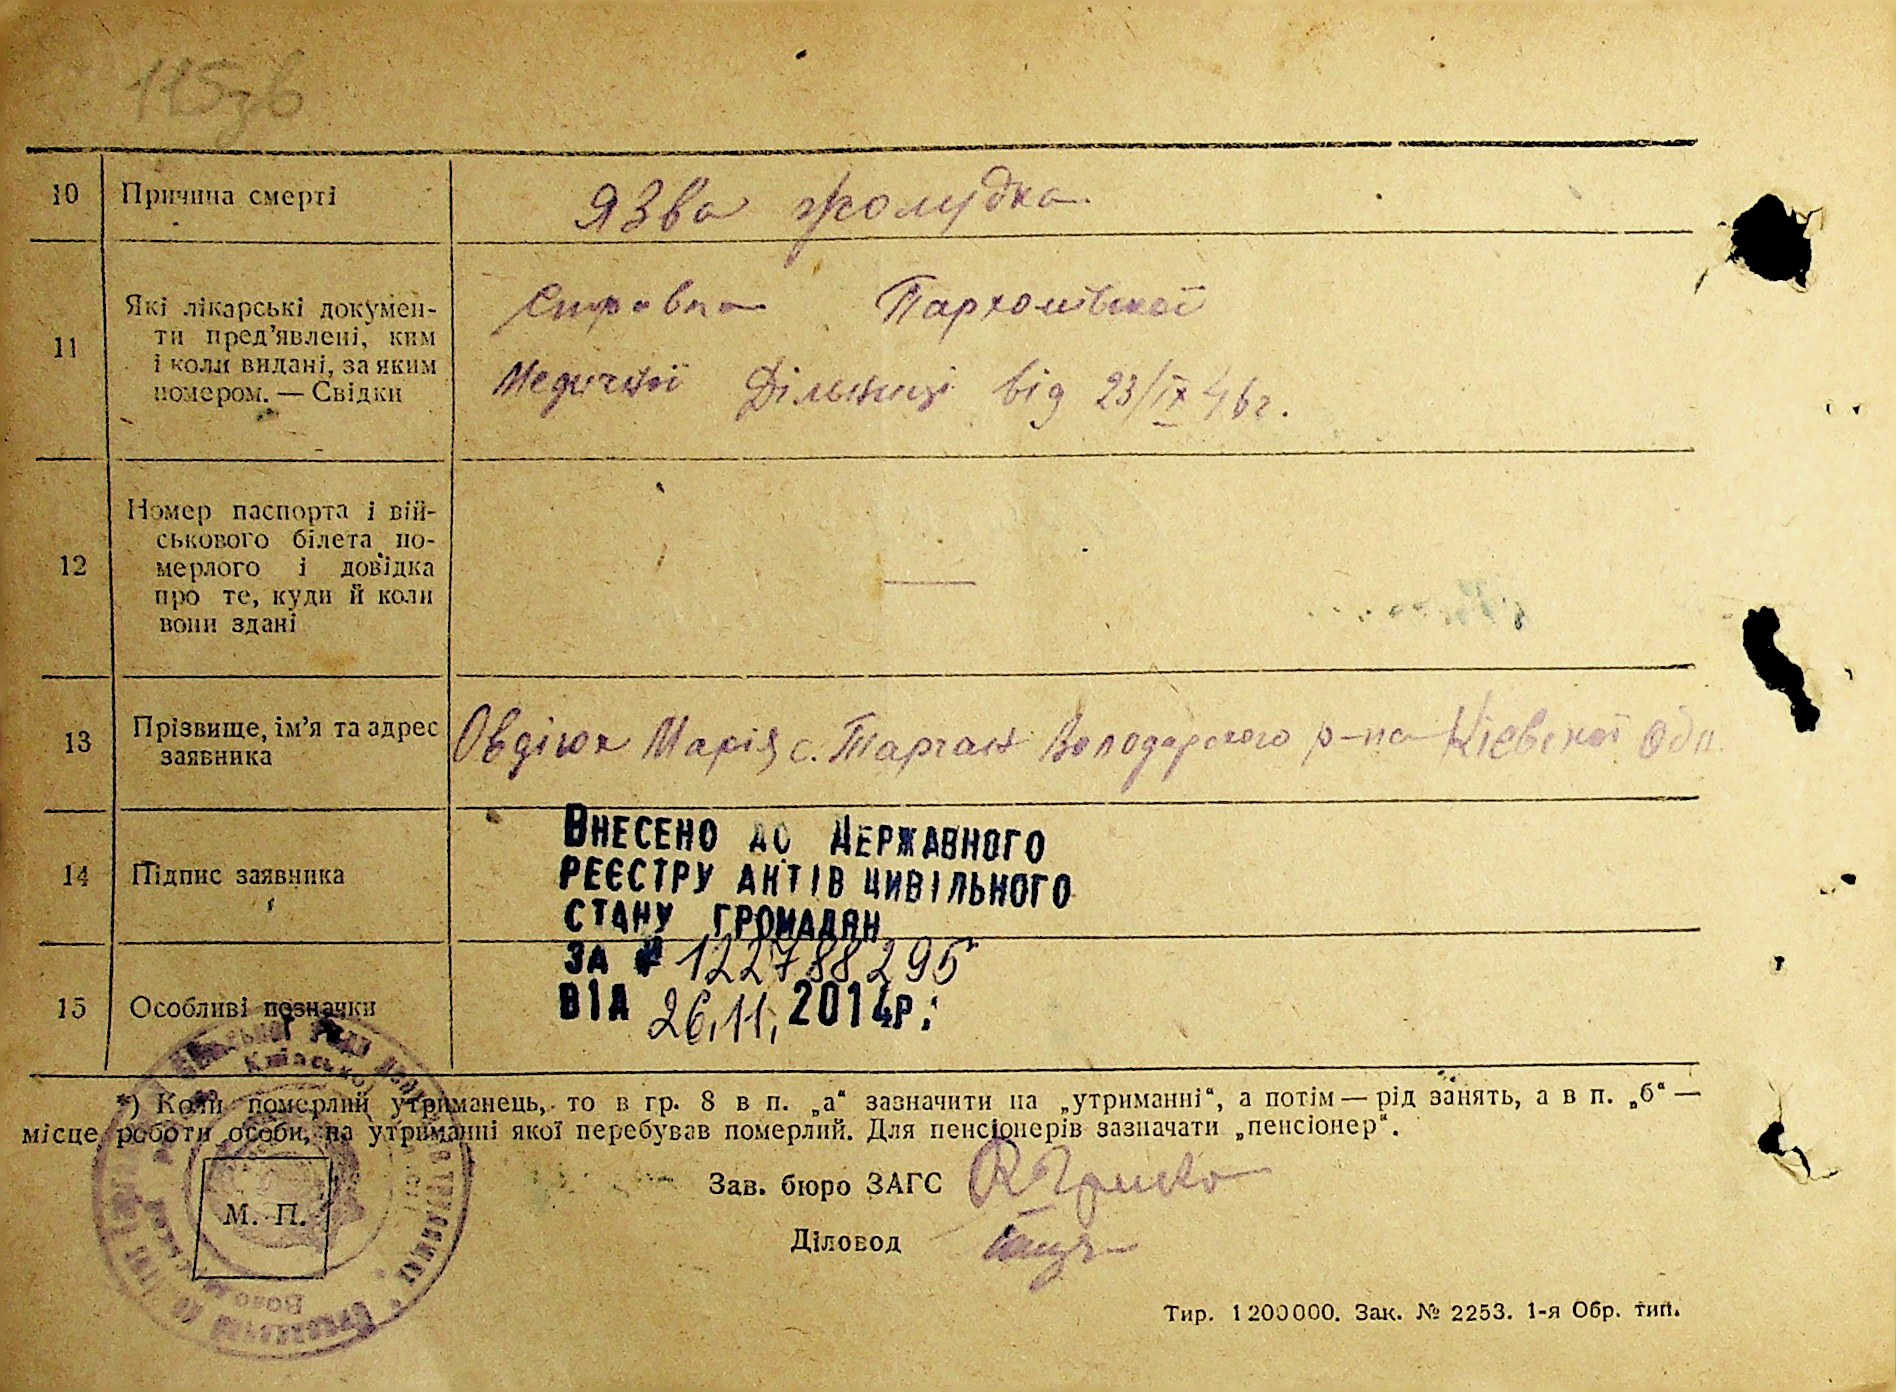 115зв
10 Причина смерті
Язва жолудка.
11 Які лікарські докумен-
ти пред’явлені, ким
і коли видані, за яким
номером. — Свідки
Справка Пархомівскої
Медичної Дільниці від 23/IX 46г.
12 Номер паспорта і вій-
ськового білета по-
мерлого і довідка
про те, куди й коли
вони здані
—
13 Прізвище, ім’я та адрес
заявника
Овдіюк Марія с. Тарган Володарского р-на Кіевскої Обл.
14 Підпис заявника
15 Особливі позначки
ВНЕСЕНО ДО ДЕРЖАВНОГО
РЕЄСТРУ АКТІВ ЦИВІЛЬНОГО
СТАНУ ГРОМАДЯН
ЗА № 122788295
ВІД 26.11. 2014р.
*) Коли померлий утриманець, то в гр. 8 в п. „а“ зазначити на „утриманні“, а потім — рід занять, а в п. „б“ —
місце роботи особи, на утриманні якої перебував померлий. Для пенсіонерів зазначати „пенсіонер“.
Зав. бюро ЗАГС
М. П.
Діловод
Тир. 1200000. Зак. № 2253. 1-я Обр. тип.